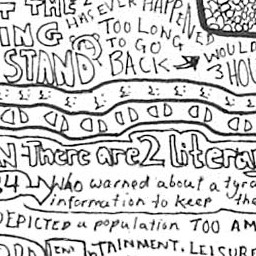 T THE 2
HAS EVER HAPPENED
ING TOO LONG
TO GO WOULD
STAND BACK 3 HOU
N There are 2 litera
84 WHO warned about a tyra
information to keep the
DEPICTED a population TOO AM
ENTAINMENT. LEISURE